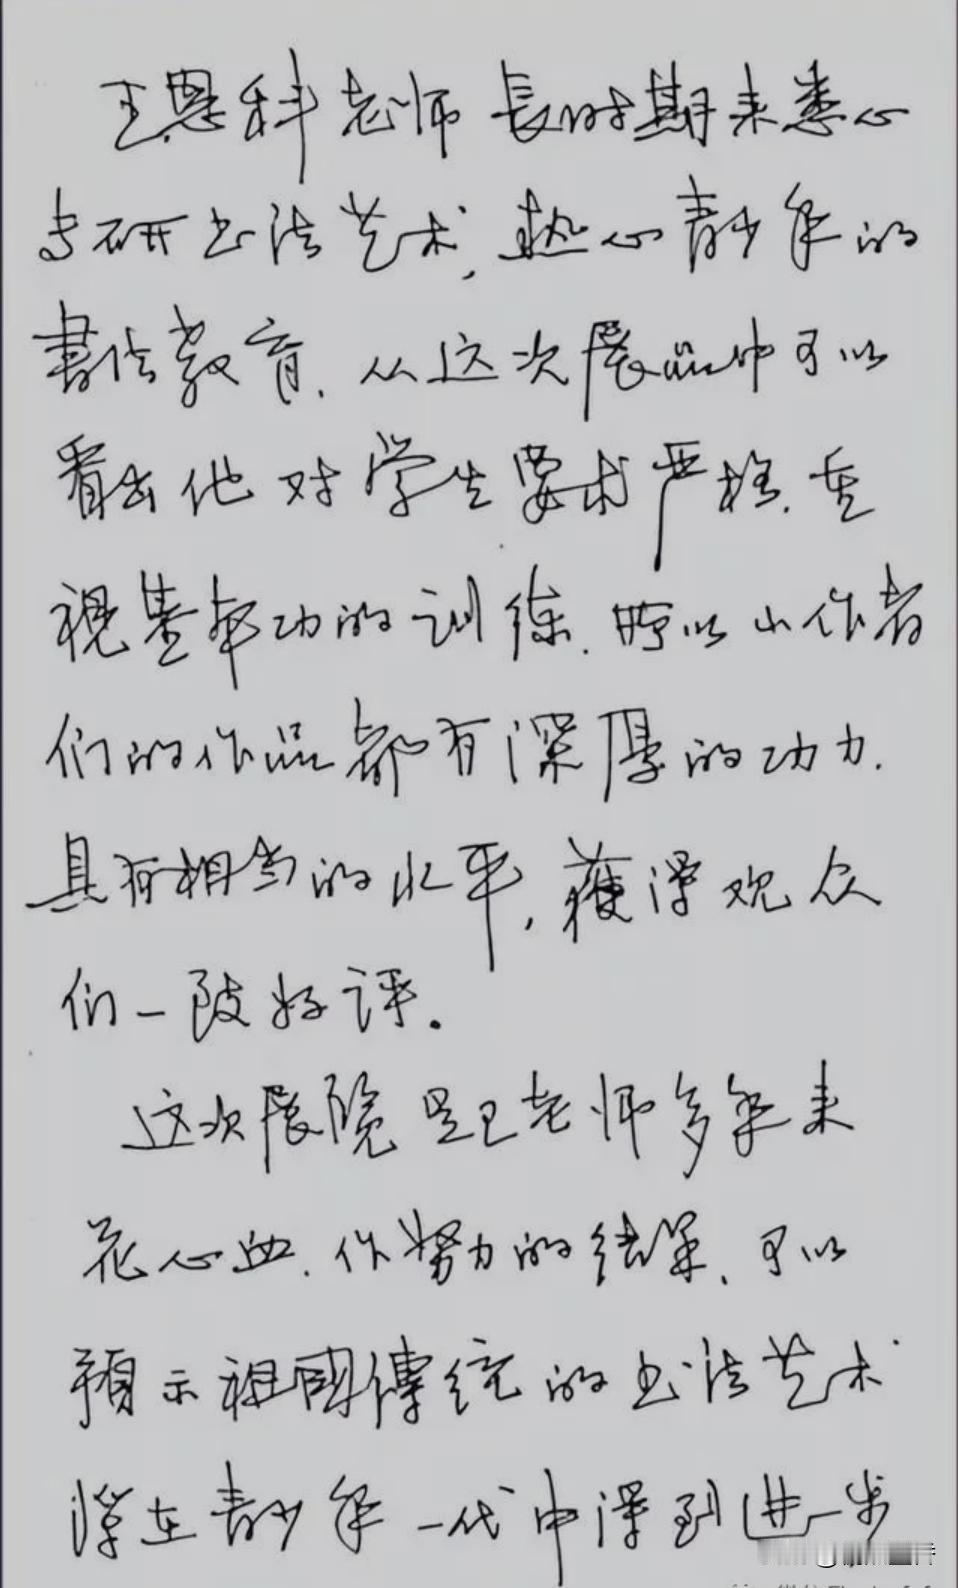 王恩科老师長时期来悉心
专研书法艺术,热心青少年的
書法教育.从这次展品中可以
看出他对学生要求严格.重
视基本功的训练.所以小作者
们的作品都有深厚的功力.
具有相当的水平,獲得观众
们一致好评。
这次展览是王老师多年来
花心血.作努力的结果.可以
預示祖國傳统的书法艺术
将在青少年一代中得到进一步